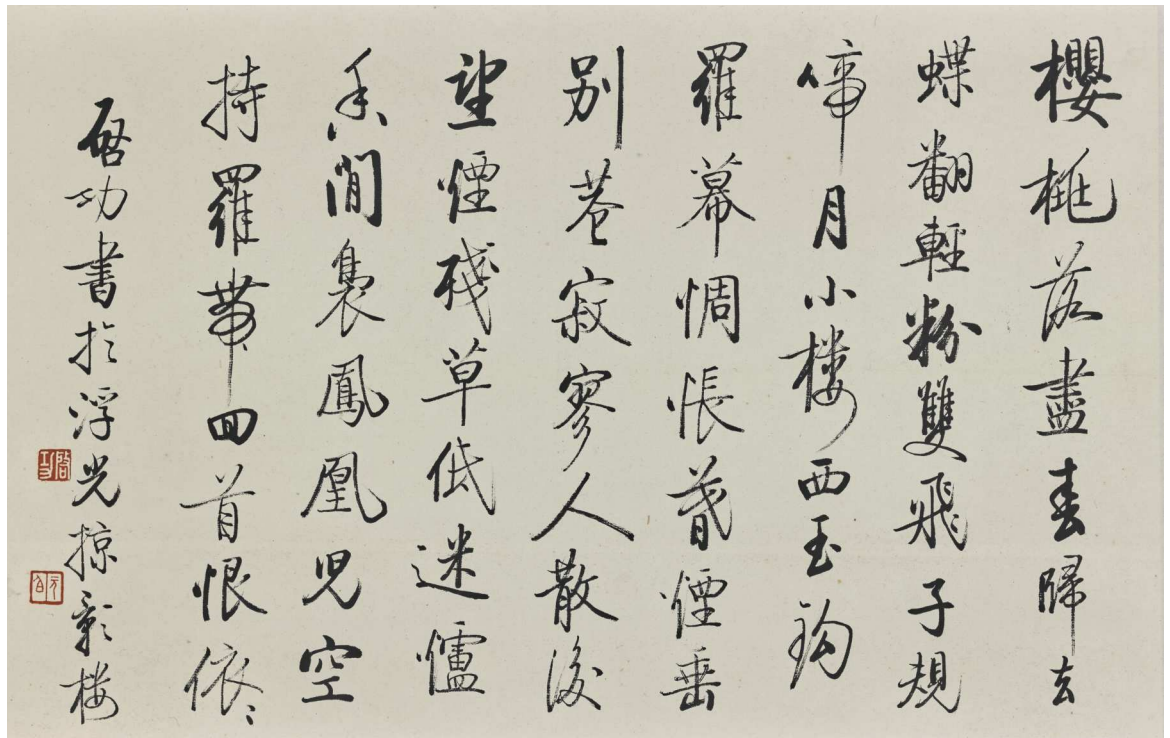 櫻桃落盡春歸去
蝶翻輕粉雙飛子規
啼月小樓西玉鈎
羅幕惆悵暮煙垂
別巷寂寥人散後
望煙殘草低迷爐
香閒裊鳳凰兒空
持羅帶回首恨依〻
啟功書於浮光掠影樓
啟功
元白